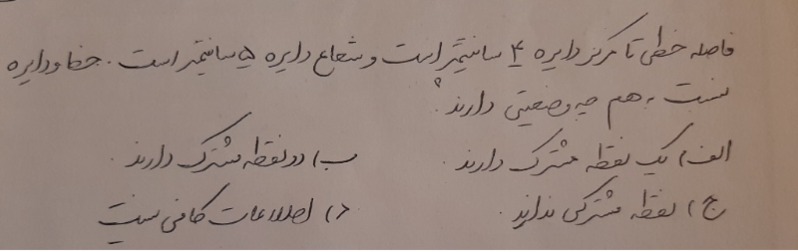 فاصله خطی تا مرکز دایره ۴ سانتیمتر است و شعاع دایره ۵ سانتیمتر است . خط و دایره
نسبت به هم چه وضعیتی دارند ؟
الف) یک نقطه مشترک دارند . ب) دو نقطه مشترک دارند .
ج) نقطه مشترکی ندارند . د) اطلاعات کافی نیست